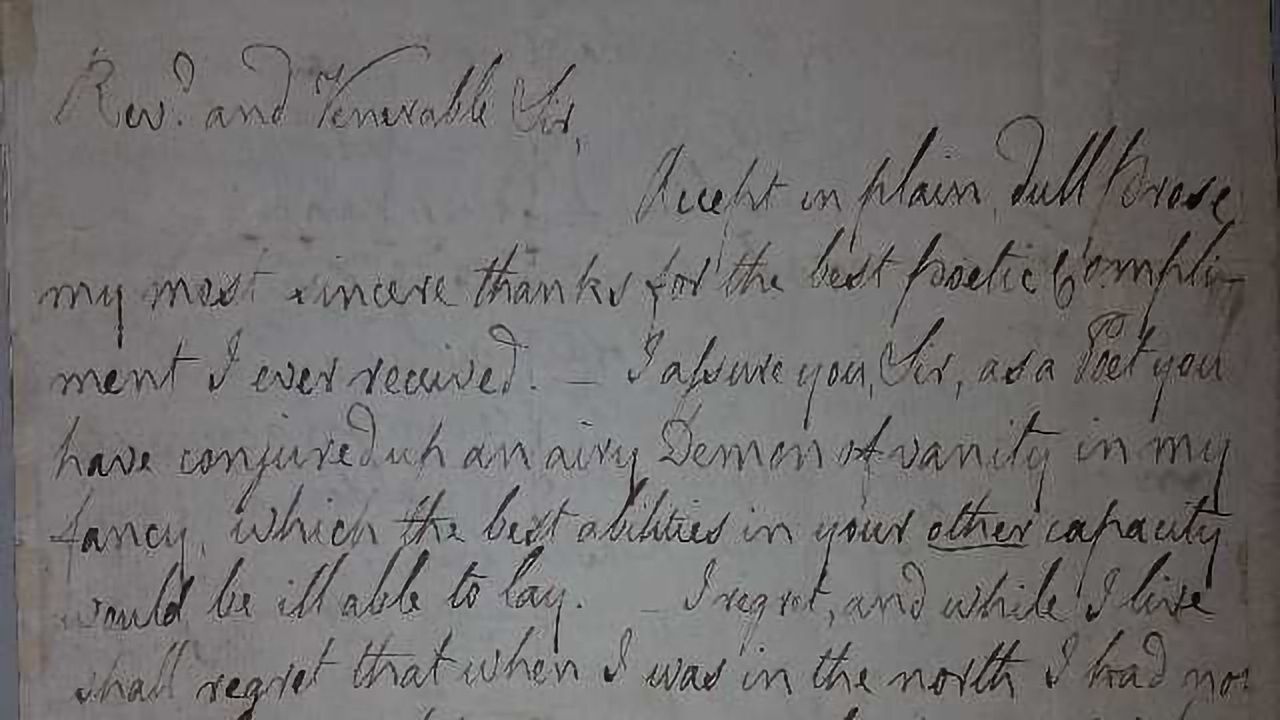 Revd. and Venerable Sir,
Accept in plain, dull Prose
my most sincere thanks for the best poetic Compli-
ment I ever received. — I assure you, Sir, as a Poet you
have conjured up an airy Demon of vanity in my
fancy, which the best abilities in your other capacity
would be ill able to lay. — I regret, and while I live
shall regret that when I was in the north I had not